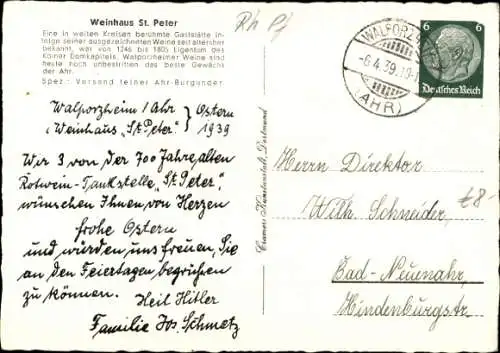 Weinhaus St. Peter
Eine in weiten Kreisen berühmte Gaststätte in-
folge seiner ausgezeichneten Weine seit altersher
bekannt, war von 1246 bis 1805 Eigentum des
Kölner Domkapitels. Walporzheimer Weine sind
heute noch unbestritten das beste Gewächs
der Ahr.
Spez.: Versand feiner Ahr-Burgunder
Rh Pf
Walporzheim / Ahr
(Weinhaus „St. Peter“)
Ostern
1939
Wir 3 von der 700 Jahre alten
Rotwein-Tankstelle „St. Peter“,
wünschen Ihnen von Herzen
frohe Ostern
und würden uns freuen, Sie
an den Feiertagen begrüßen
zu können. Heil Hitler
Familie Jos. Schmetz
Cramers Kunstanstalt, Dortmund
-6.4.39.
(AHR)
6 6
Deutsches Reich
Herrn Direktor
Wilh. Schneider,
€8-
Bad-Neuenahr,
Hindenburgstr.